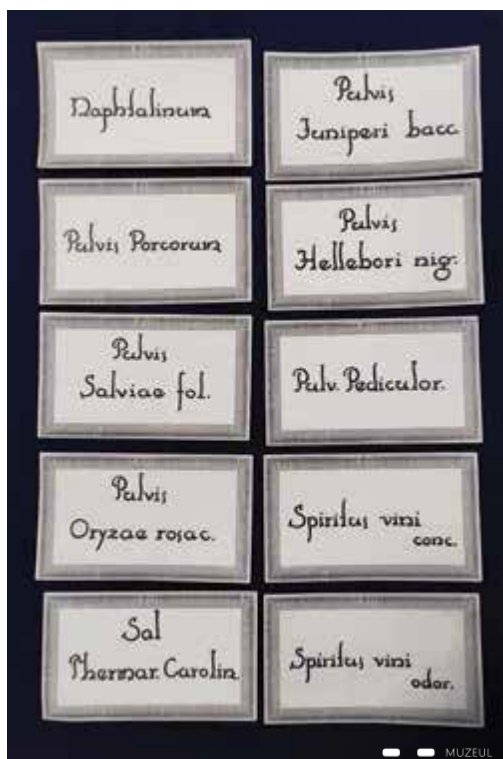 Naphtalinum
Pulvis Porcorum
Pulvis
Salviae fol.
Pulvis
Oryzae rosac.
Sal
Thermar. Carolin.
Pulvis
Juniperi bacc.
Pulvis
Hellebori nigr.
Pulv. Pediculor.
Spiritus vini
conc.
Spiritus vini
odor.
MUZEUL